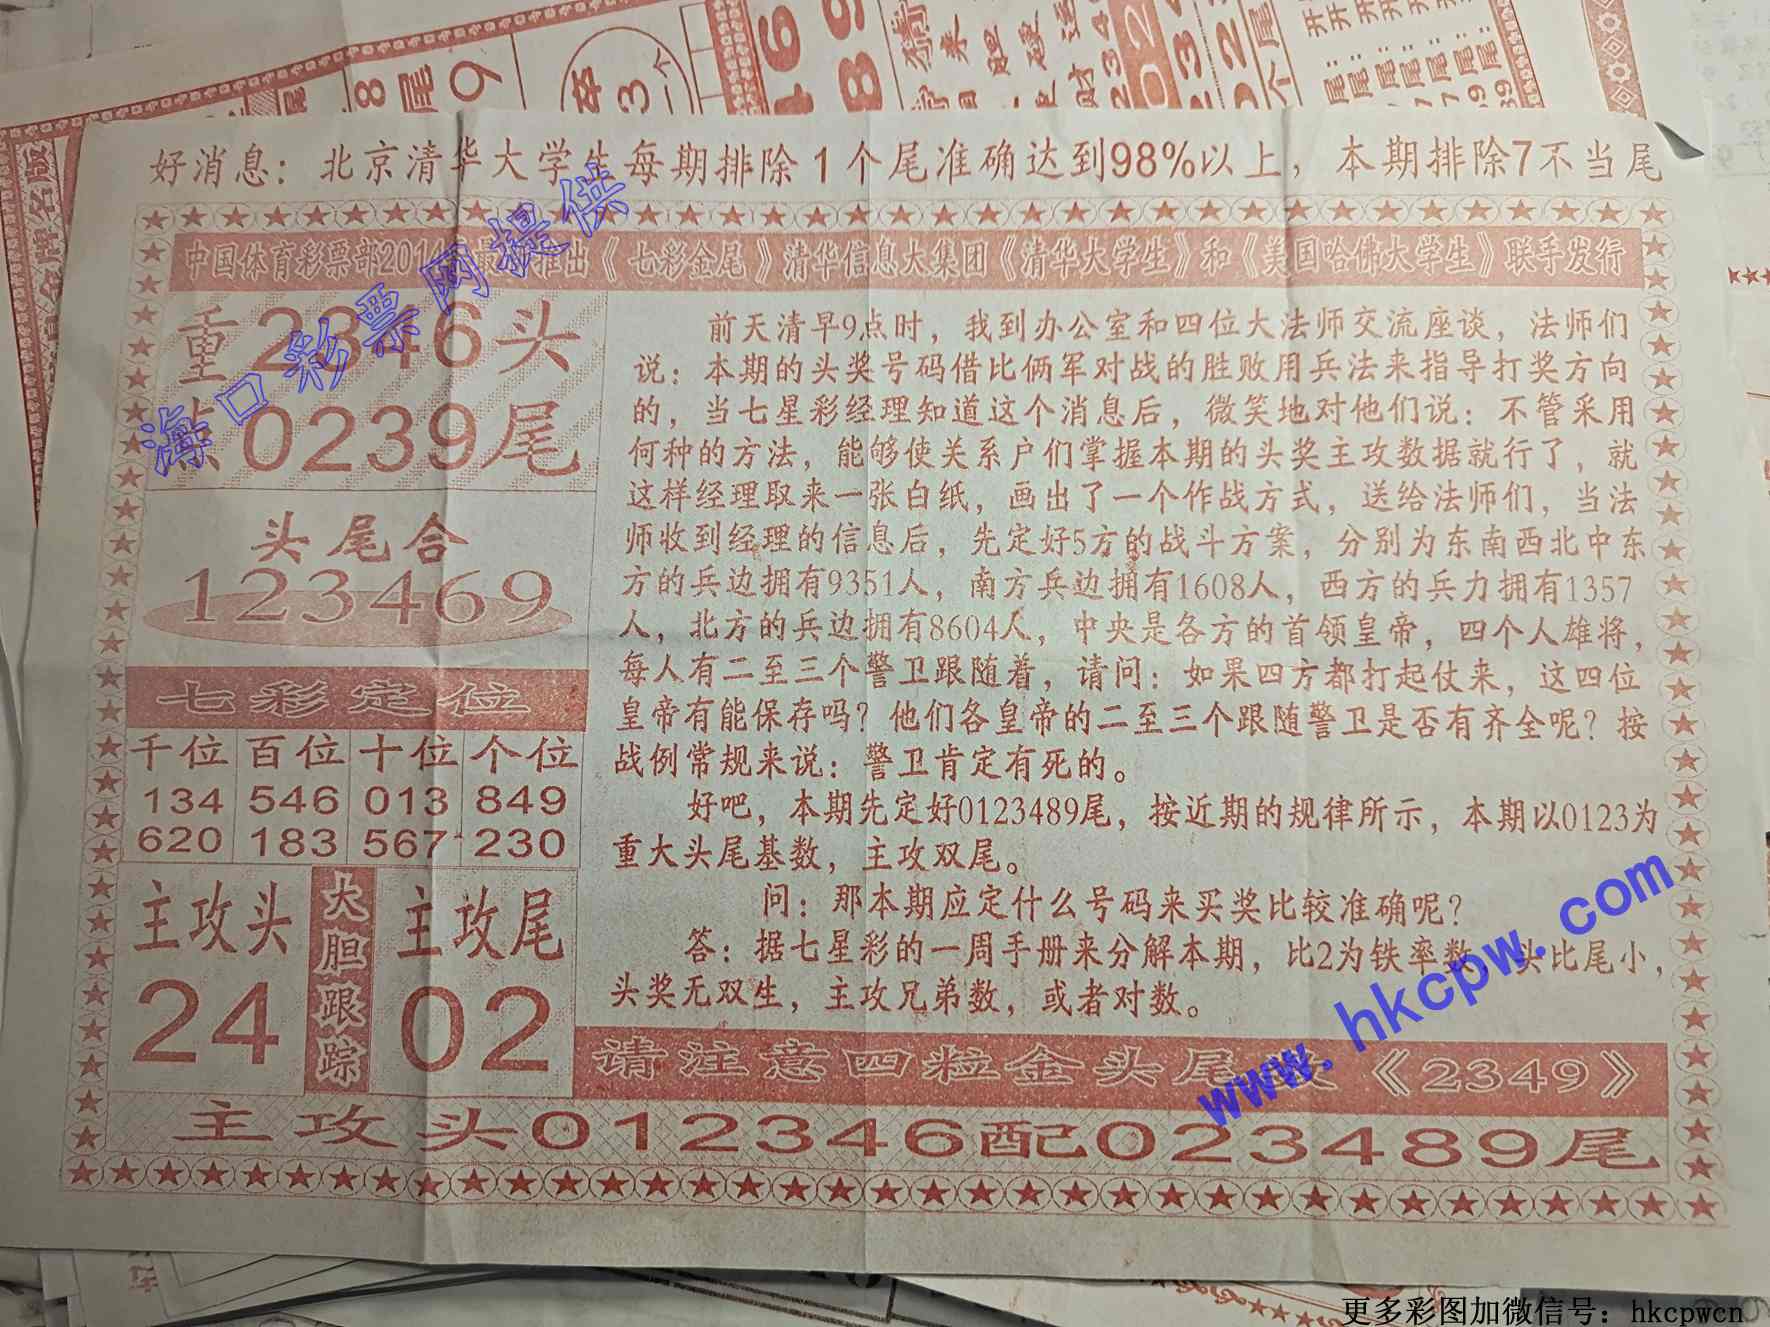 好消息：北京清华大学生每期排除1个尾准确达到98%以上，本期排除7不当尾
中国体育彩票部201 最 推出《七彩金尾》清华信息大集团《清华大学生》和《美国哈佛大学生》联手发行
重2346头
0239尾
头尾合
123469
七彩定位
千位 百位 十位 个位
134 546 013 849
620 183 567 230
主攻头 大胆跟踪 主攻尾
24 02
前天清早9点时，我到办公室和四位大法师交流座谈，法师们
说：本期的头奖号码借比俩军对战的胜败用兵法来指导打奖方向
的，当七星彩经理知道这个消息后，微笑地对他们说：不管采用
何种的方法，能够使关系户们掌握本期的头奖主攻数据就行了，就
这样经理取来一张白纸，画出了一个作战方式，送给法师们，当法
师收到经理的信息后，先定好5方的战斗方案，分别为东南西北中东
方的兵边拥有9351人，南方兵边拥有1608人，西方的兵力拥有1357
人，北方的兵边拥有8604人，中央是各方的首领皇帝，四个人雄将，
每人有二至三个警卫跟随着，请问：如果四方都打起仗来，这四位
皇帝有能保存吗？他们各皇帝的二至三个跟随警卫是否有齐全呢？按
战例常规来说：警卫肯定有死的。
好吧，本期先定好0123489尾，按近期的规律所示，本期以0123为
重大头尾基数，主攻双尾。
问：那本期应定什么号码来买奖比较准确呢？
答：据七星彩的一周手册来分解本期，比2为铁率数，头比尾小，
头奖无双生，主攻兄弟数，或者对数。
请注意四粒金头尾 《2349》
主攻头012346配023489尾
海口彩票网提供
www.hkcpw.com
更多彩图加微信号：hkcpwcn